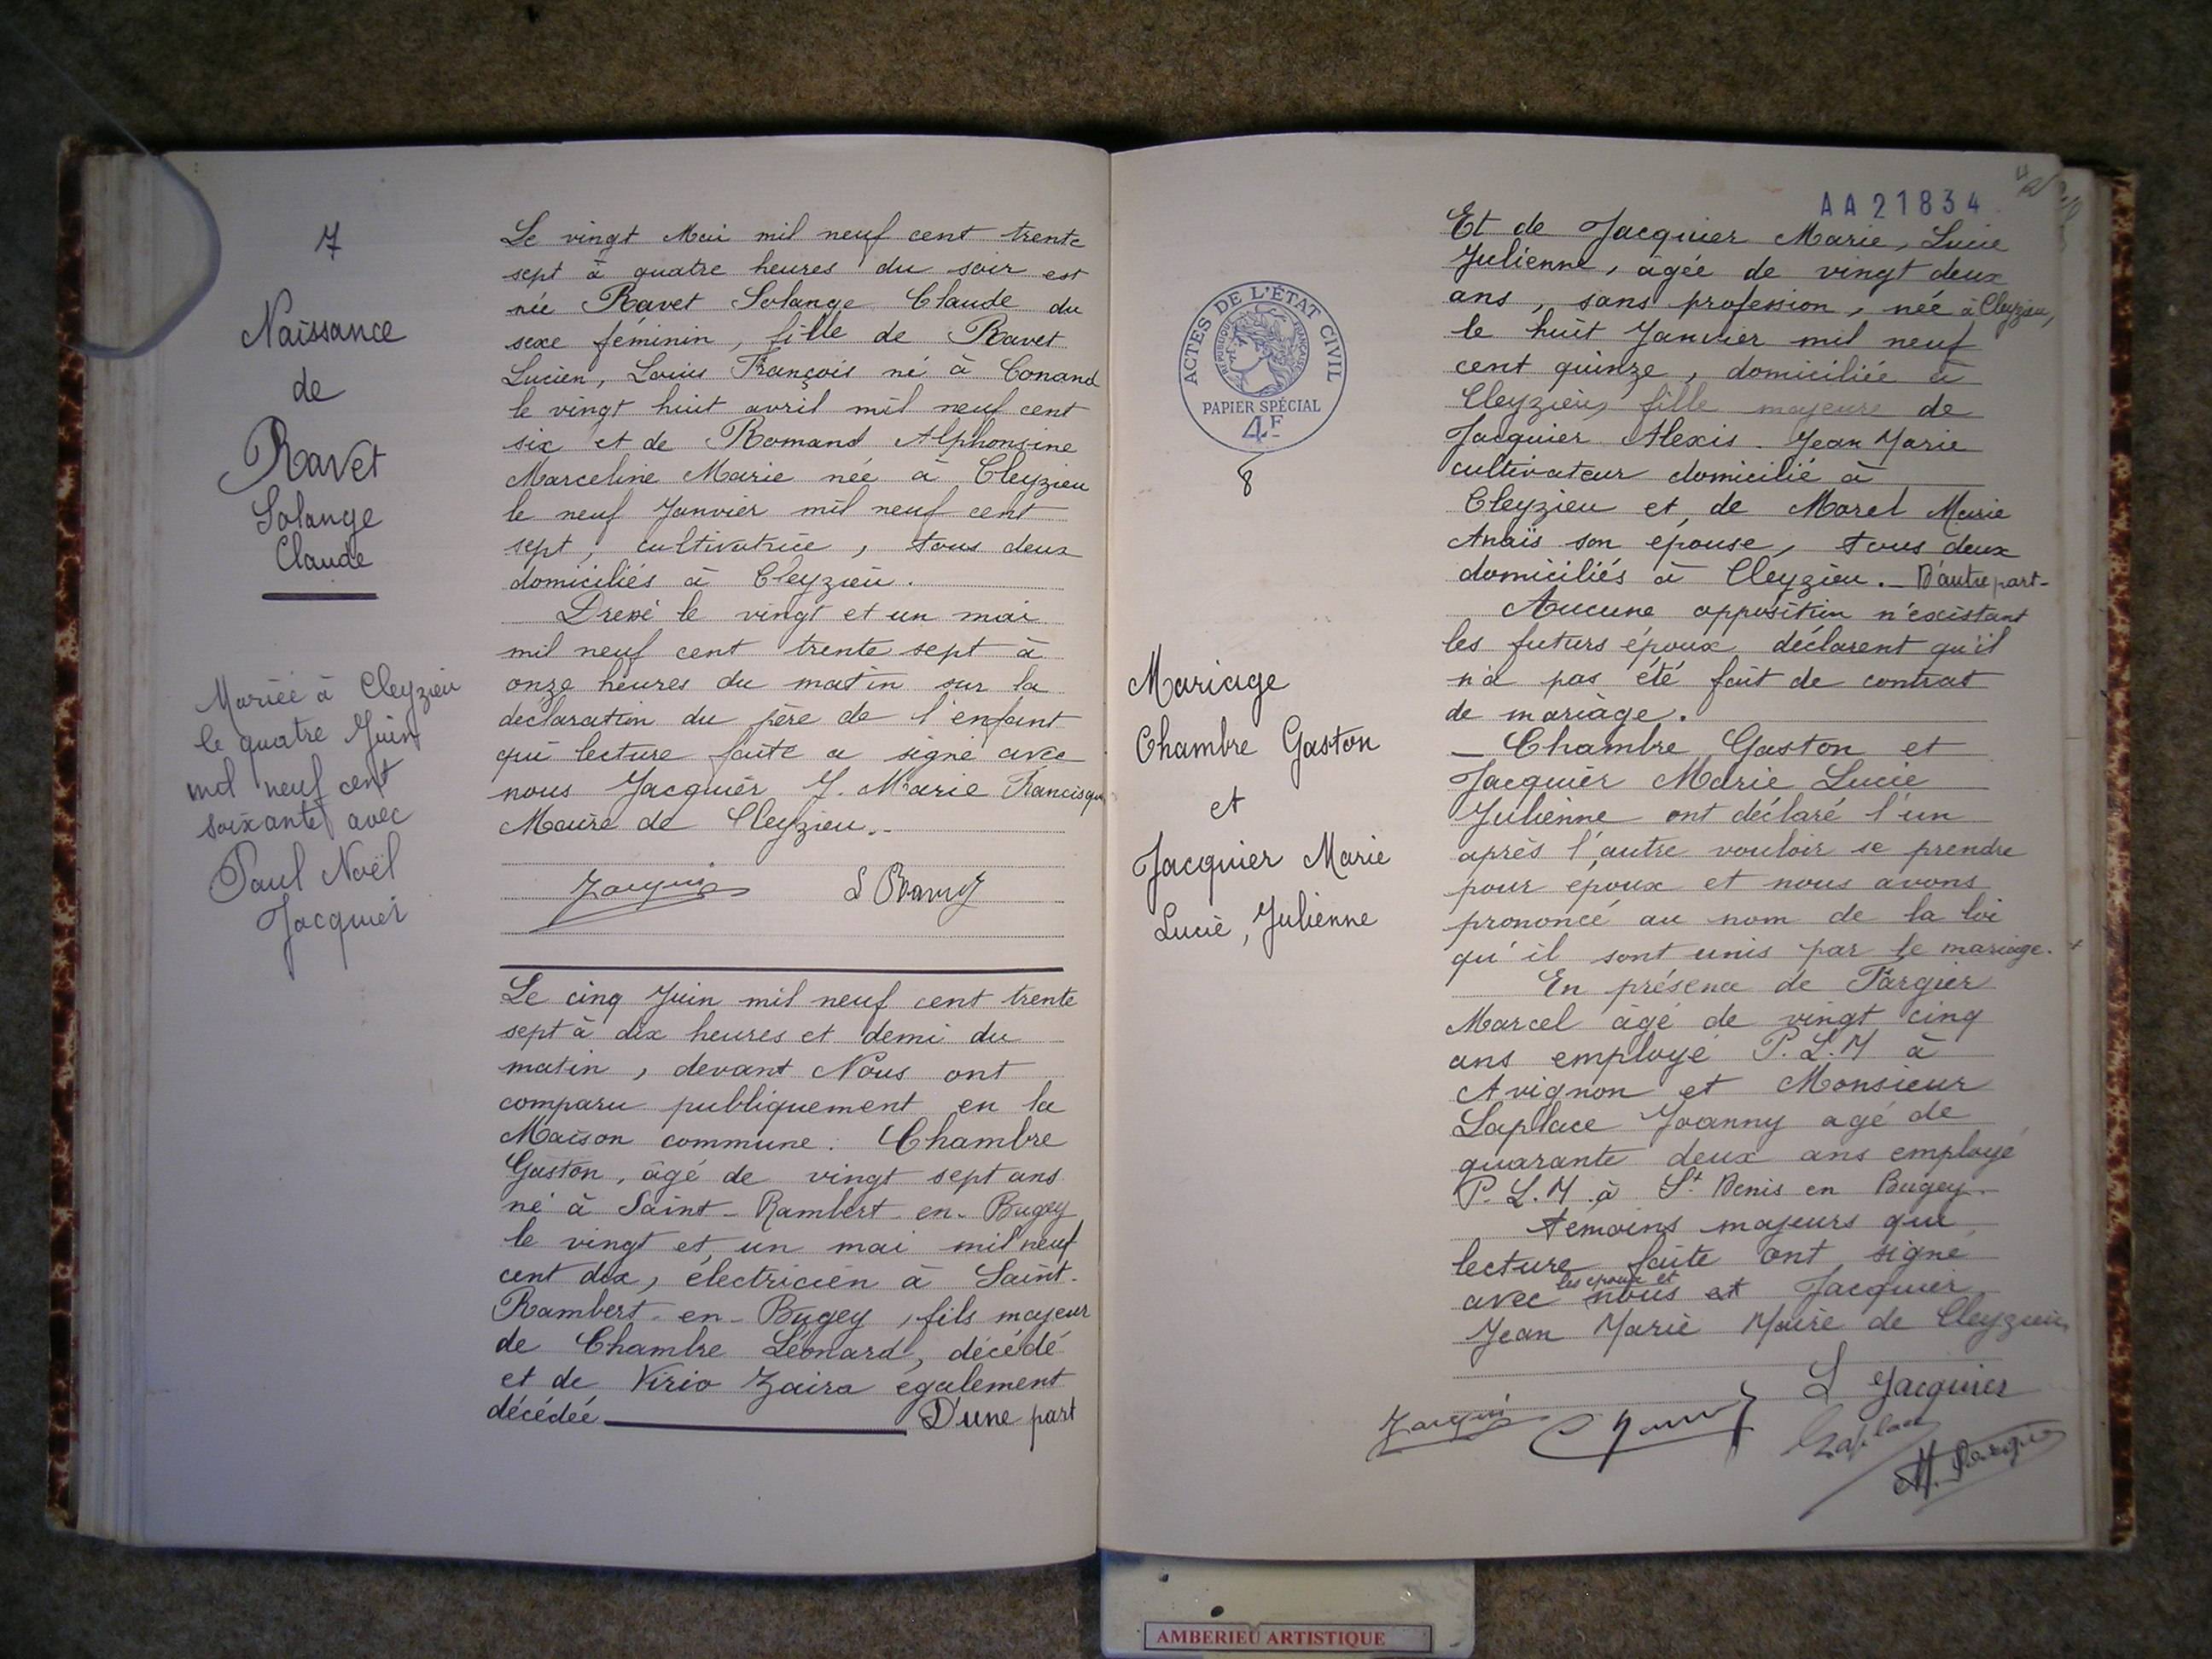 7
Naissance
de
Ravet
Solange
Claude
Mariée à Cleyzieu
le quatre Juin
mil neuf cent
soixante avec
Paul Noël
Jacquier
Le vingt Mai mil neuf cent trente
sept à quatre heures du soir est
née Ravet Solange Claude du
sexe féminin, fille de Ravet
Lucien, Louis François né à Conand
le vingt huit avril mil neuf cent
six et de Romand Alphonsine
Marceline Marie née à Cleyzieu
le neuf Janvier mil neuf cent
sept, cultivatrice, tous deux
domiciliés à Cleyzieu.
Dressé le vingt et un mai
mil neuf cent trente sept à
onze heures du matin sur la
déclaration du père de l'enfant
qui lecture faite a signé avec
nous Jacquier J. Marie Francisque
Maire de Cleyzieu.
Jacquier L Ravet
Le cinq Juin mil neuf cent trente
sept à dix heures et demi du
matin, devant Nous ont
comparu publiquement en la
Maison commune. Chambre
Gaston, âgé de vingt sept ans
né à Saint-Rambert-en-Bugey
le vingt et un mai mil neuf
cent dix, électricien à Saint-
Rambert-en-Bugey, fils majeur
de Chambre Léonard, décédé
et de Virio Zaira également
décédée D'une part
AA21834
ACTES DE L'ÉTAT CIVIL
RÉPUBLIQUE FRANÇAISE
PAPIER SPÉCIAL
4F
8
Mariage
Chambre Gaston
et
Jacquier Marie
Lucie, Julienne
Et de Jacquier Marie, Lucie
Julienne, âgée de vingt deux
ans, sans profession, née à Cleyzieu,
le huit Janvier mil neuf
cent quinze, domiciliée à
Cleyzieu, fille majeure de
Jacquier Alexis. Jean Marie
cultivateur domicilié à
Cleyzieu et de Morel Marie
Anaïs son epouse, tous deux
domiciliés à Cleyzieu. D'autre part-
Aucune opposition n'existant
les futurs époux déclarent qu'il
n'a pas été fait de contrat
de mariage.
- Chambre Gaston et
Jacquier Marie Lucie
Julienne ont déclaré l'un
après l'autre vouloir se prendre
pour époux et nous avons
prononcé au nom de la loi
qu'il sont unis par le mariage.
En présence de Fargier
Marcel âgé de vingt cinq
ans employé P.L.M à
Avignon et Monsieur
Laplace Joanny agé de
quarante deux ans employé
P.L.M à St Denis en Bugey-
temoins majeurs que
lecture faite ont signé
les epoux et
avec nous et Jacquier
Jean Marie Maire de Cleyzieu
L Jacquier
Jacquier
Laplace
M. Fargier
AMBERIEU ARTISTIQUE